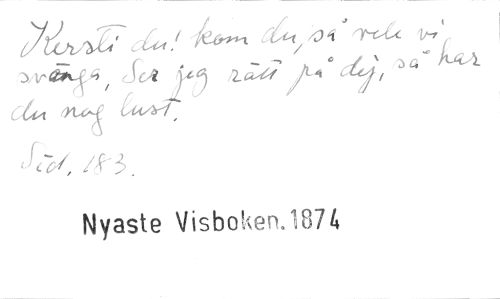 Kersti du! kom du, så vele vi
svänga, Ser jeg rätt på dej, så har
du nog lust.
Sid. 183.
Nyaste Visboken. 1874